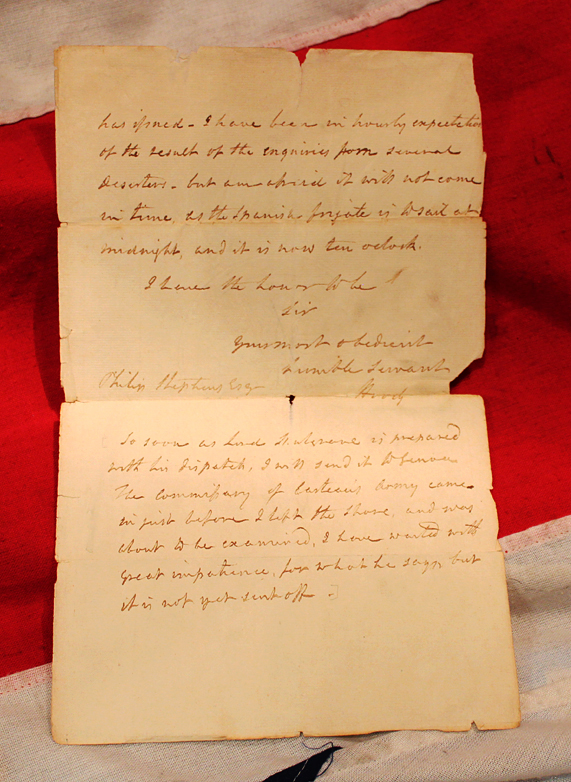 has issued - I have been in hourly expectation
of the result of the enquiries from several
Deserters - but am afraid it will not come
in time, as the Spanish frigate is to sail at
midnight, and it is now ten oclock.
I have the honor to be
Sir
Your most obedient
humble Servant
Philip Stephens Esqr
Hood
So soon as Lord Mulgrave is prepared
with his dispatch, I will send it to Genoa
The commissary of Carteau's Army came
in just before I left the shore, and was
about to be examined, I have waited with
great impatience, for what he says, but
it is not yet sent off -